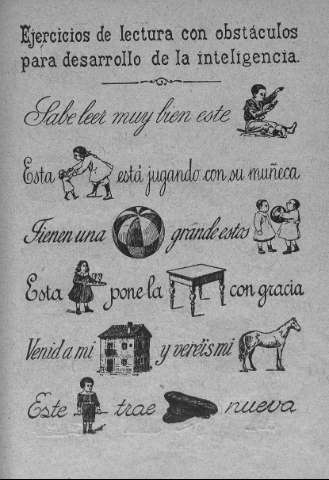 Ejercicios de lectura con obstáculos
para desarrollo de la inteligencia.
Sabe leer muy bien este
Esta está jugando con su muñeca
Tienen una grande estos
Esta pone la con gracia
Venid a mi y veréis mi
Este trae nueva